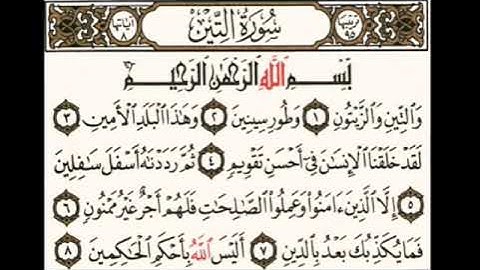 ترتيبها ٩٥ سُورَةُ التِّينِ آياتها ٨
بِسْمِ ٱللَّهِ ٱلرَّحْمَٰنِ ٱلرَّحِيمِ
وَٱلتِّينِ وَٱلزَّيْتُونِ ١ وَطُورِ سِينِينَ ٢ وَهَٰذَا ٱلْبَلَدِ ٱلْأَمِينِ ٣
لَقَدْ خَلَقْنَا ٱلْإِنسَٰنَ فِىٓ أَحْسَنِ تَقْوِيمٍ ٤ ثُمَّ رَدَدْنَٰهُ أَسْفَلَ سَٰفِلِينَ
٥ إِلَّا ٱلَّذِينَ ءَامَنُوا۟ وَعَمِلُوا۟ ٱلصَّٰلِحَٰتِ فَلَهُمْ أَجْرٌ غَيْرُ مَمْنُونٍ ٦
فَمَا يُكَذِّبُكَ بَعْدُ بِٱلدِّينِ ٧ أَلَيْسَ ٱللَّهُ بِأَحْكَمِ ٱلْحَٰكِمِينَ ٨